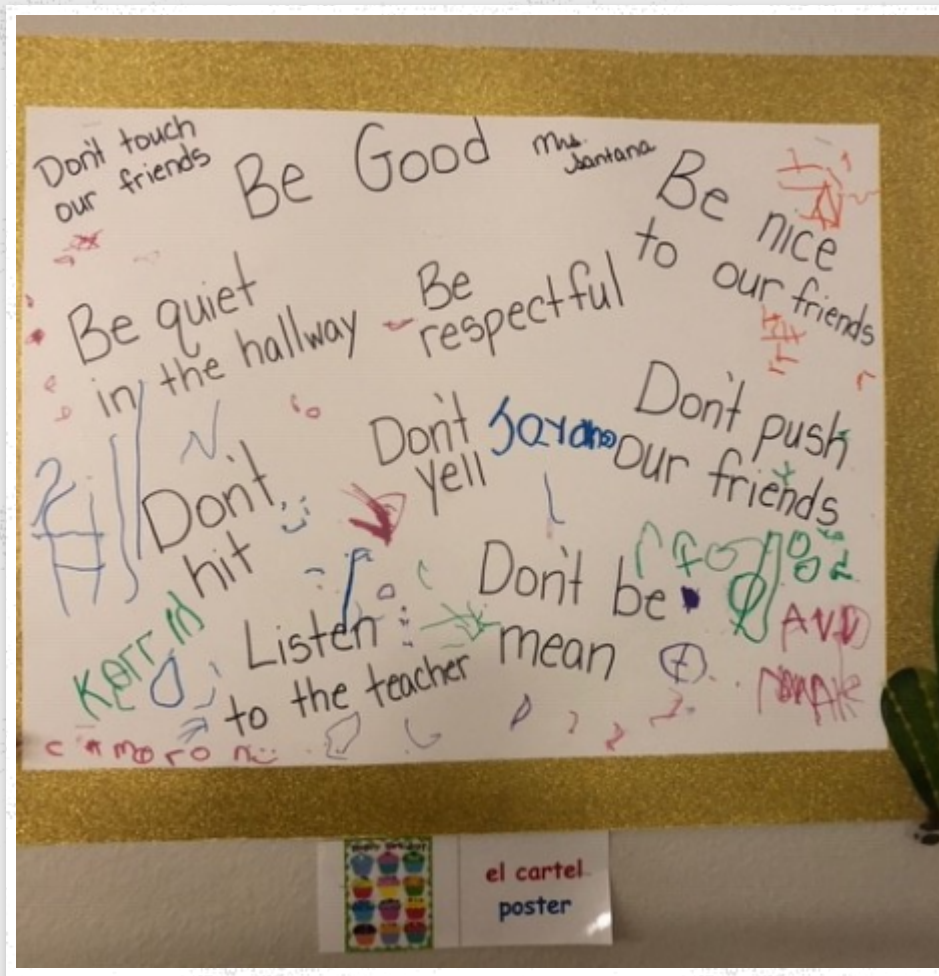 Don't touch
our friends
Be Good
Mrs.
Santana
Be nice
to our friends
Be quiet
in the hallway
Be
respectful
Don't
yell
Don't push
our friends
Don't
hit
Don't be
mean
Listen
to the teacher
cameron
el cartel
poster